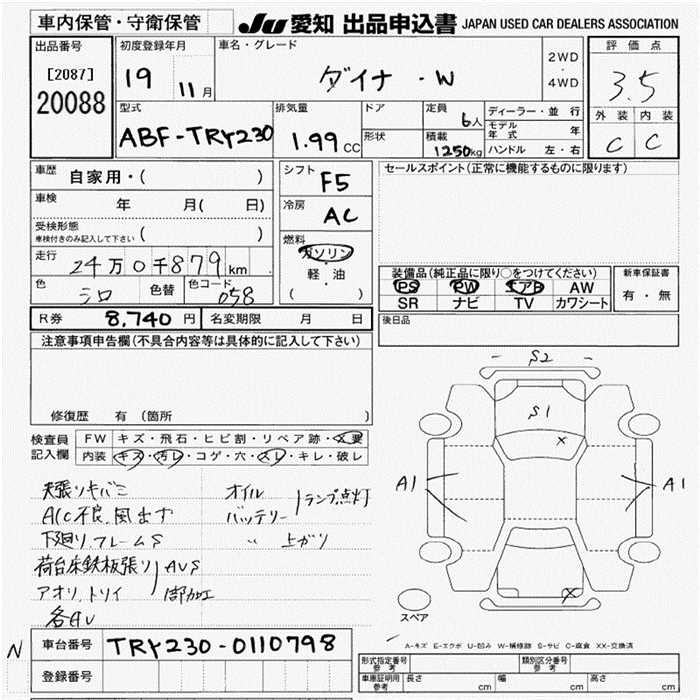 車内保管・守衛保管
JU 愛知 出品申込書 JAPAN USED CAR DEALERS ASSOCIATION
出品番号
[2087]
20088
初度登録年月
19 11月
車名・グレード
ダイナ ・W
2WD
・
4WD
評価点
3.5
外装 内装
C C
型式
ABF-TRY230
排気量
1.99 CC
ドア
形状
定員
6人
積載
1250kg
ディーラー・並行
モデル年式 年
ハンドル 左・右
車歴 自家用・( )
車検 年 月( 日)
受検形態
車検付きのみ記入して下さい ( )
走行 24万0千879km
色 シロ 色替 色コード 058
シフト F5
冷房 AC
燃料
ガソリン
軽・油
( )
セールスポイント(正常に機能するものに限ります)
装備品(純正品に限り○をつけてください)
PS PW エアB AW
SR ナビ TV カワシート
新車保証書
有・無
R券 8,740円 名変期限 月 日
後日品
注意事項申告欄(不具合内容等は具体的に記入して下さい)
修復歴 有(箇所 )
検査員記入欄
FW キズ・飛石・ヒビ割・リペア跡・X要
内装 キズ・汚レ・コゲ・穴・スレ・キレ・破レ
天張シキバミ
A/C不良、風出ず
下廻り、フレームS
荷台床鉄板張り AUS
アオリ、トリイ 1部加工
各AU
オイル
バッテリー ランプ点灯
〃 上がり
S2
S1
X
A1
A1
X
スペア
A-キズ E-エクボ U-凹み W-補修跡 S-サビ C-腐食 XX-交換済
N
車台番号 TRY230-0110798
登録番号
形式指定番号 参考
類別区分番号 参考
車庫証明用 参考 長さ cm 幅 cm 高さ cm